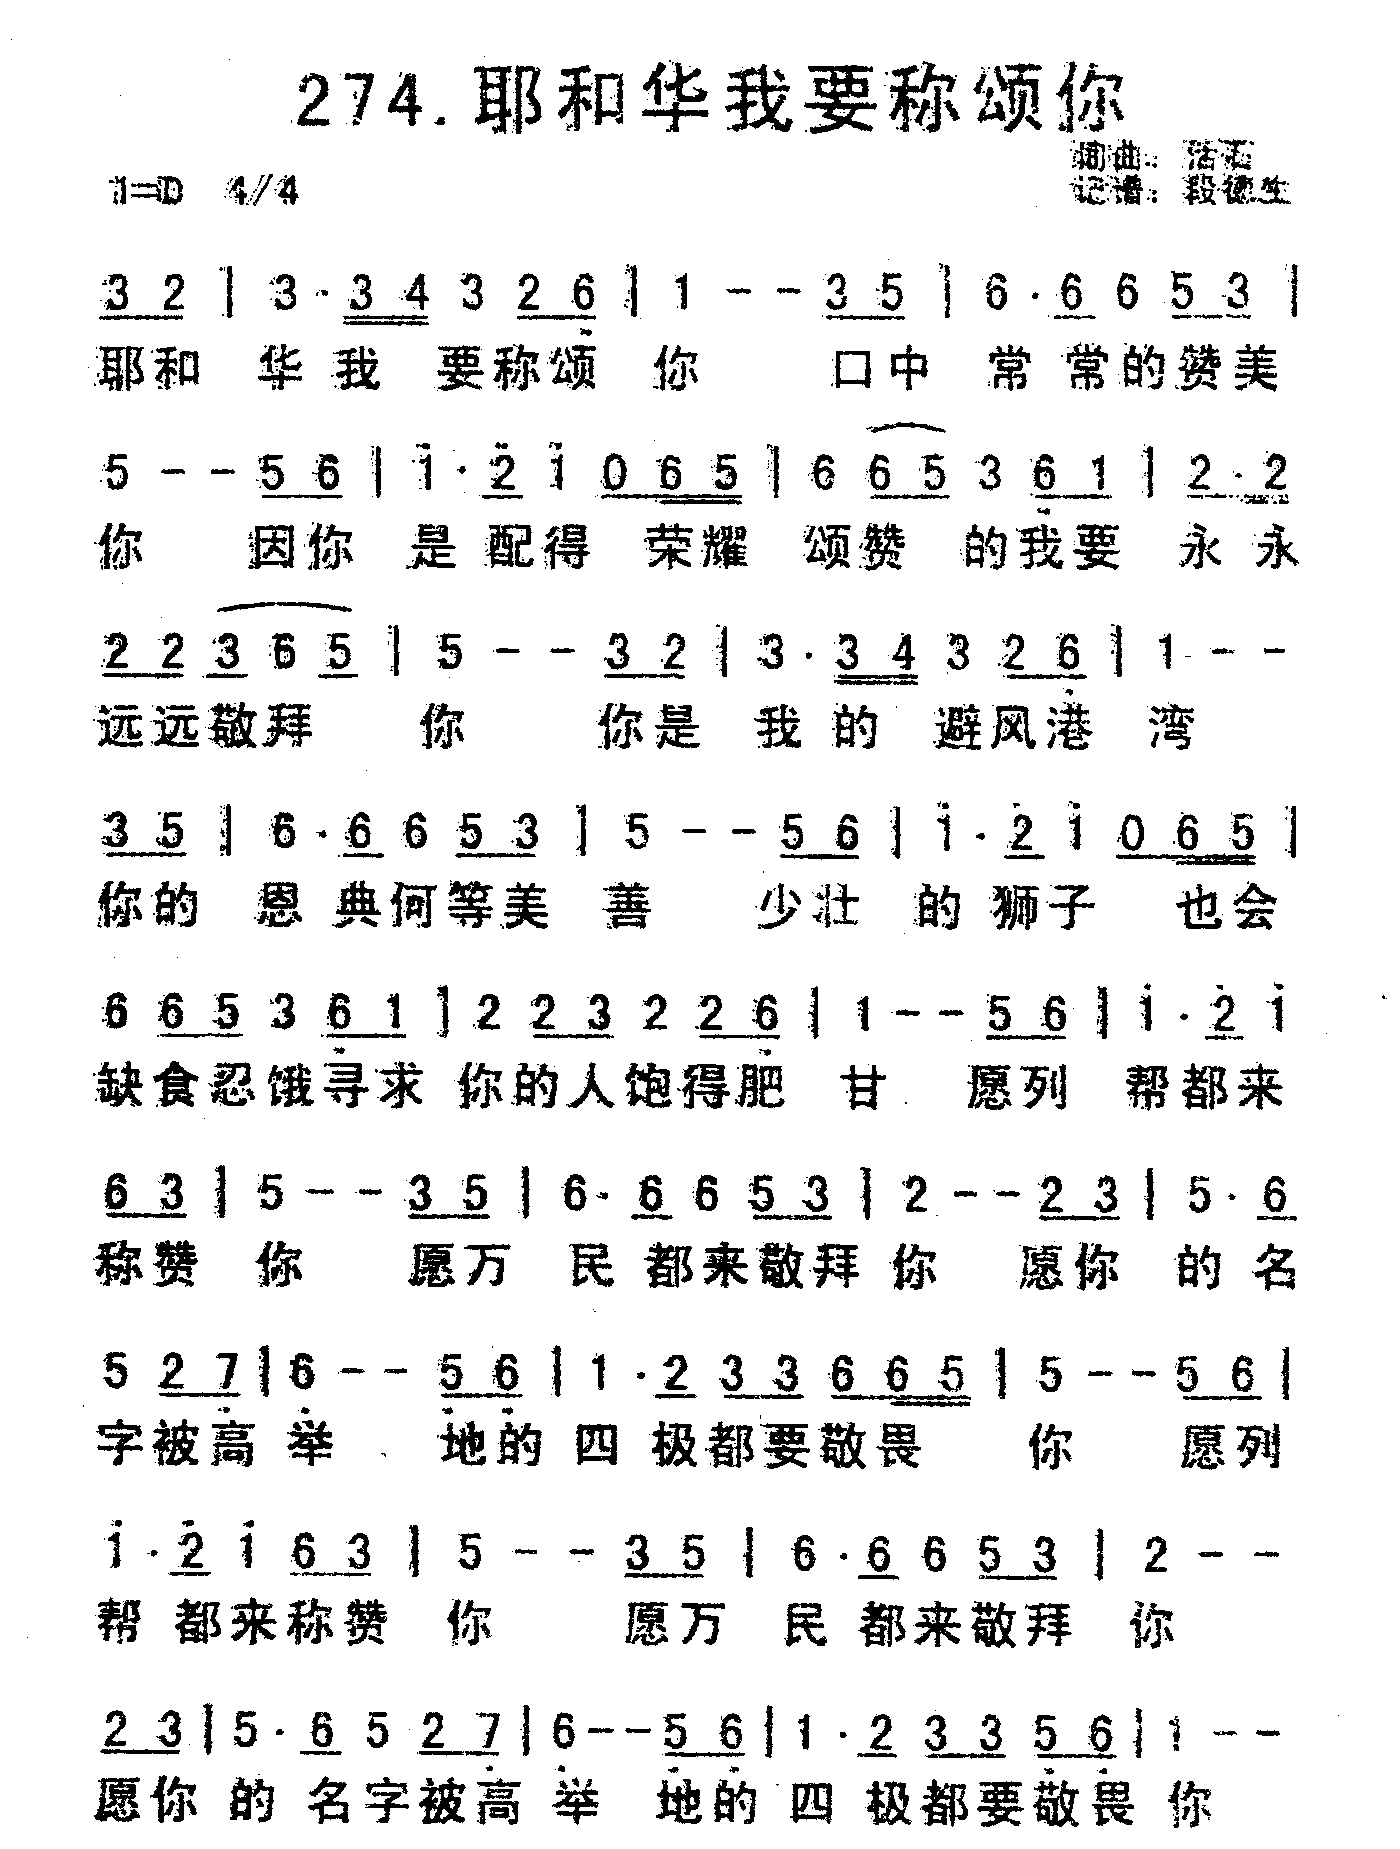 274.耶和华我要称颂你
词曲：活石
1=D 4/4
记谱：段德生
3 2 | 3 · 3 4 3 2 6 | 1 - - 3 5 | 6 · 6 6 5 3 |
耶和 华我 要称颂 你 口中 常 常的赞美
5 - - 5 6 | 1 · 2 1 0 6 5 | 6 6 5 3 6 1 | 2 · 2
你 因你 是配得 荣耀 颂赞 的我要 永永
2 2 3 6 5 | 5 - - 3 2 | 3 · 3 4 3 2 6 | 1 - -
远远敬拜 你 你是 我的 避风港 湾
3 5 | 6 · 6 6 5 3 | 5 - - 5 6 | 1 · 2 1 0 6 5 |
你的 恩 典何等美 善 少壮 的狮子 也会
6 6 5 3 6 1 | 2 2 3 2 2 6 | 1 - - 5 6 | 1 · 2 1
缺食忍饿寻求 你的人饱得肥 甘 愿列 帮都来
6 3 | 5 - - 3 5 | 6 · 6 6 5 3 | 2 - - 2 3 | 5 · 6
称赞 你 愿万 民 都来敬拜 你 愿你 的名
5 2 7 | 6 - - 5 6 | 1 · 2 3 3 6 6 5 | 5 - - 5 6 |
字被高 举 地的 四 极都要敬畏 你 愿列
1 · 2 1 6 3 | 5 - - 3 5 | 6 · 6 6 5 3 | 2 - -
帮 都来称赞 你 愿万 民 都来敬拜 你
2 3 | 5 · 6 5 2 7 | 6 - - 5 6 | 1 · 2 3 3 5 6 | 1 - -
愿你 的 名字被高 举 地的 四 极都要敬畏 你